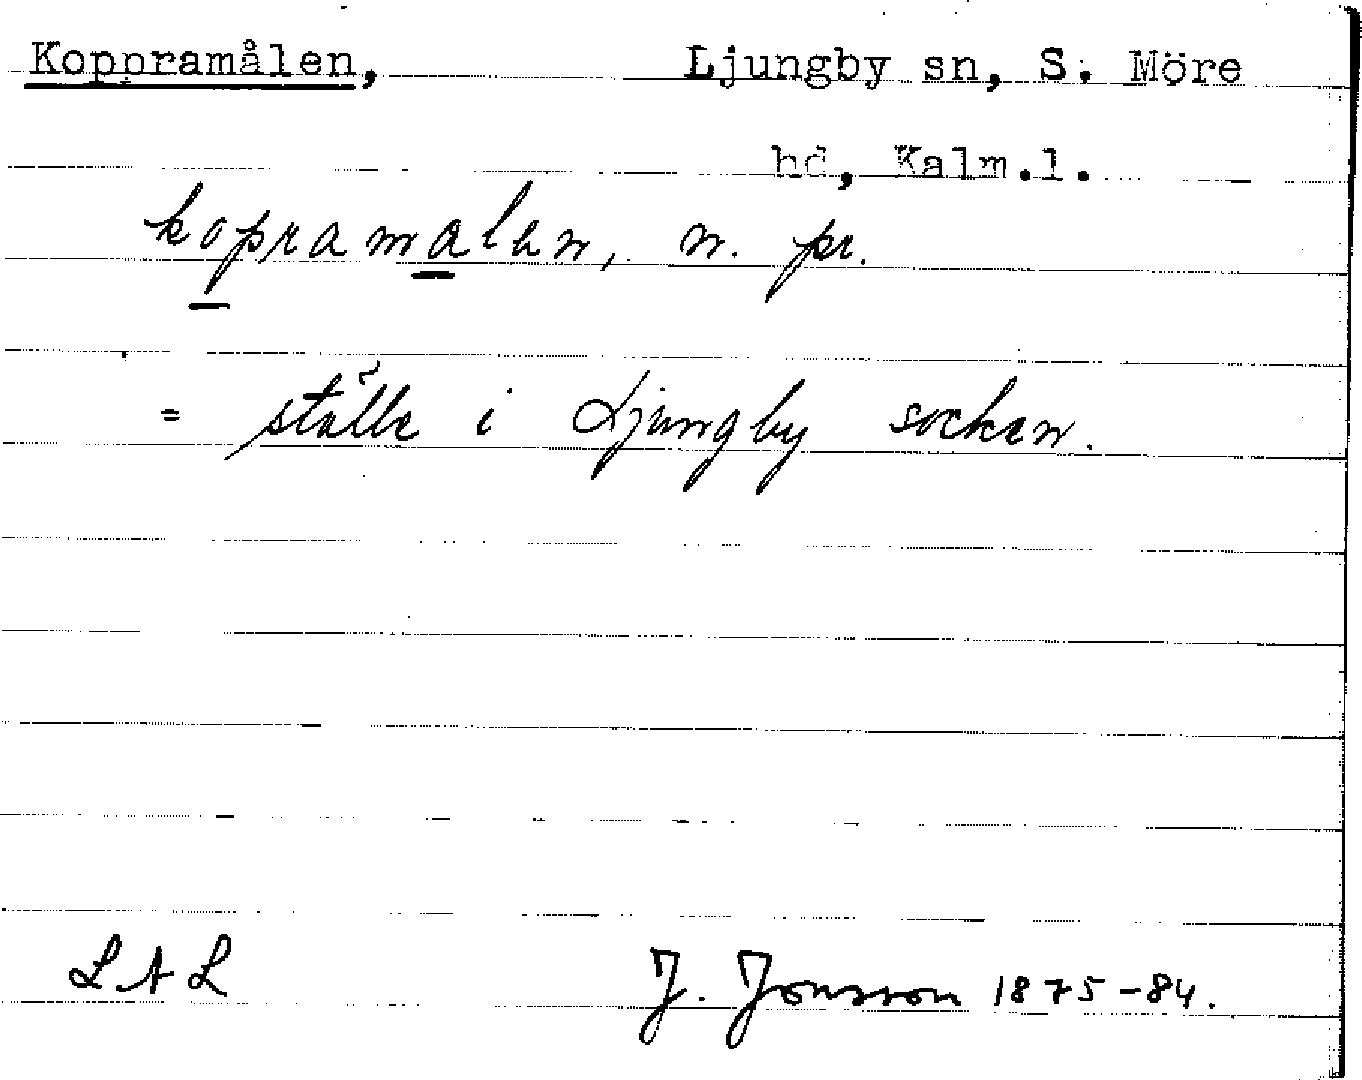 Koppramålen, Ljungby sn, S. Möre
hd, Kalm.l.
kopramalen, n. pr.
= ställe i Ljungby socken.
LAL J. Jonsson 1875-84.